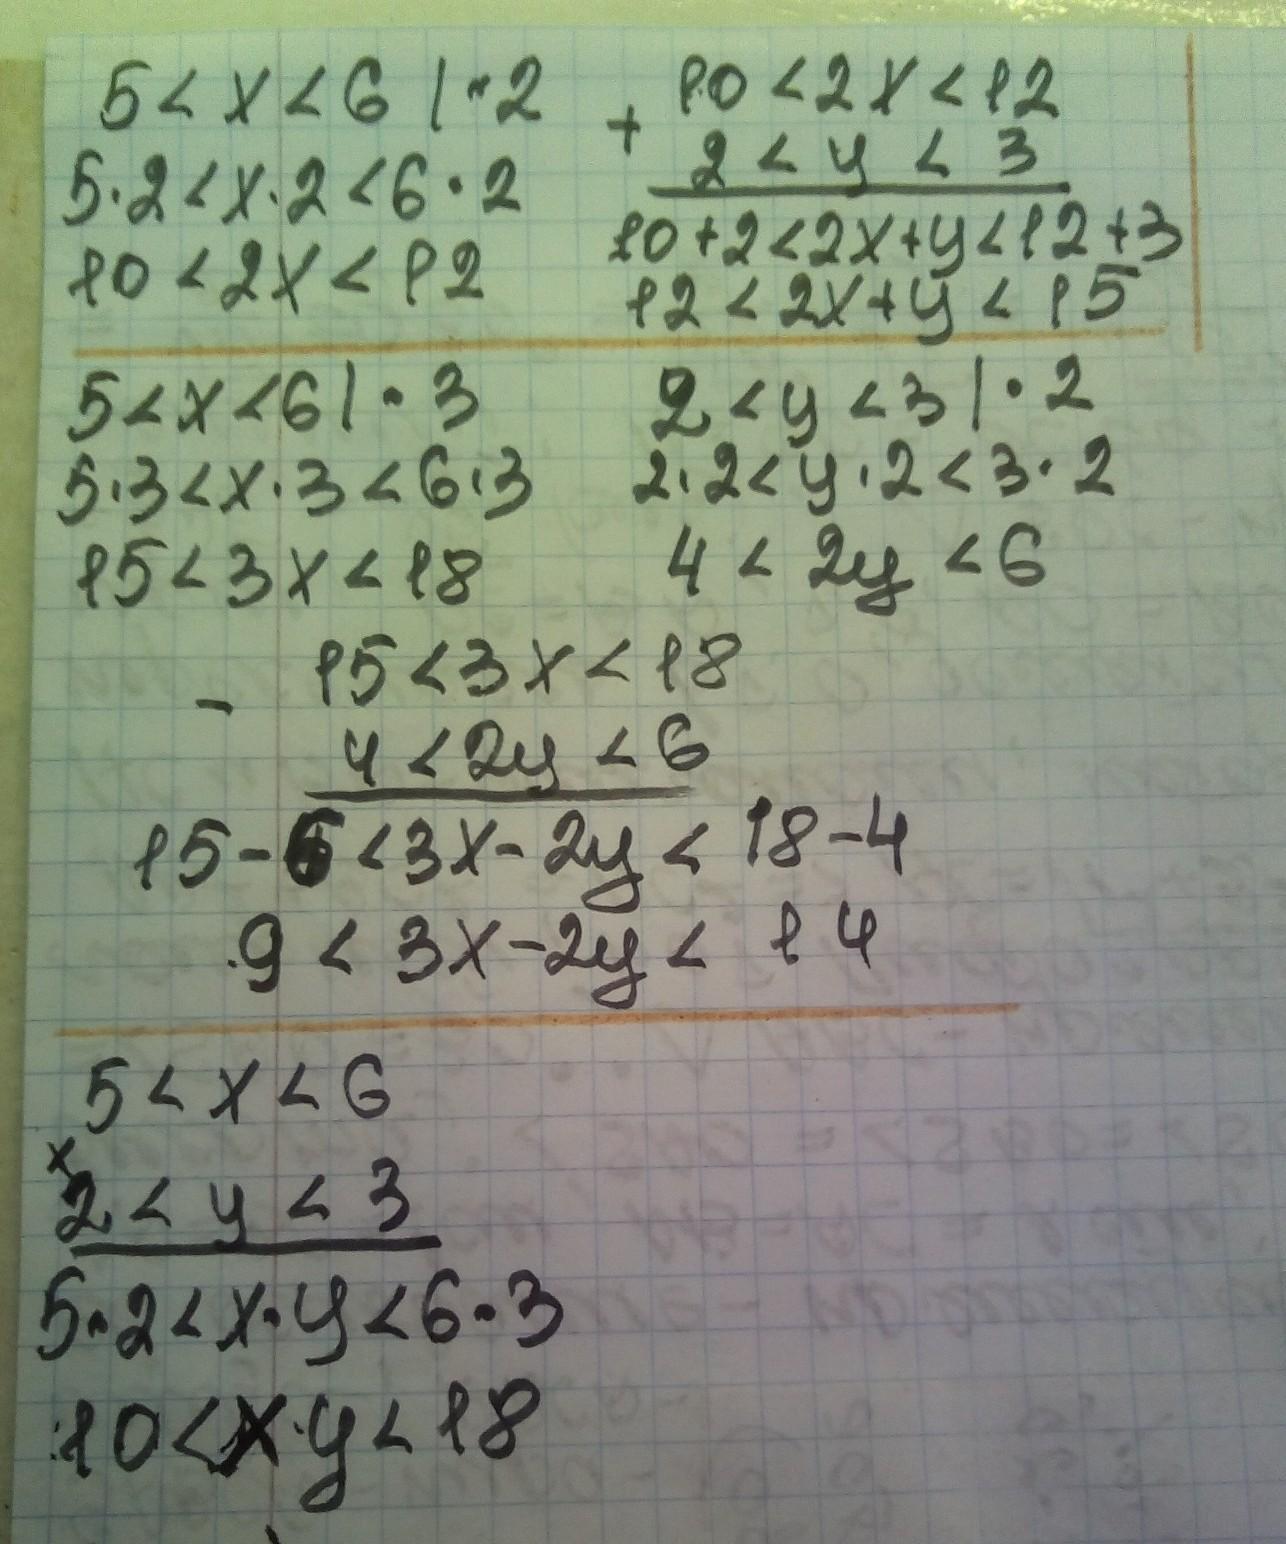 5 < x < 6 | · 2
5·2 < x·2 < 6·2
10 < 2x < 12
+ 10 < 2x < 12
2 < y < 3
10+2 < 2x+y < 12+3
12 < 2x+y < 15
5 < x < 6 | · 3
5·3 < x·3 < 6·3
15 < 3x < 18
2 < y < 3 | · 2
2·2 < y·2 < 3·2
4 < 2y < 6
- 15 < 3x < 18
4 < 2y < 6
15-6 < 3x-2y < 18-4
9 < 3x-2y < 14
5 < x < 6
x 2 < y < 3
5·2 < x·y < 6·3
10 < x·y < 18